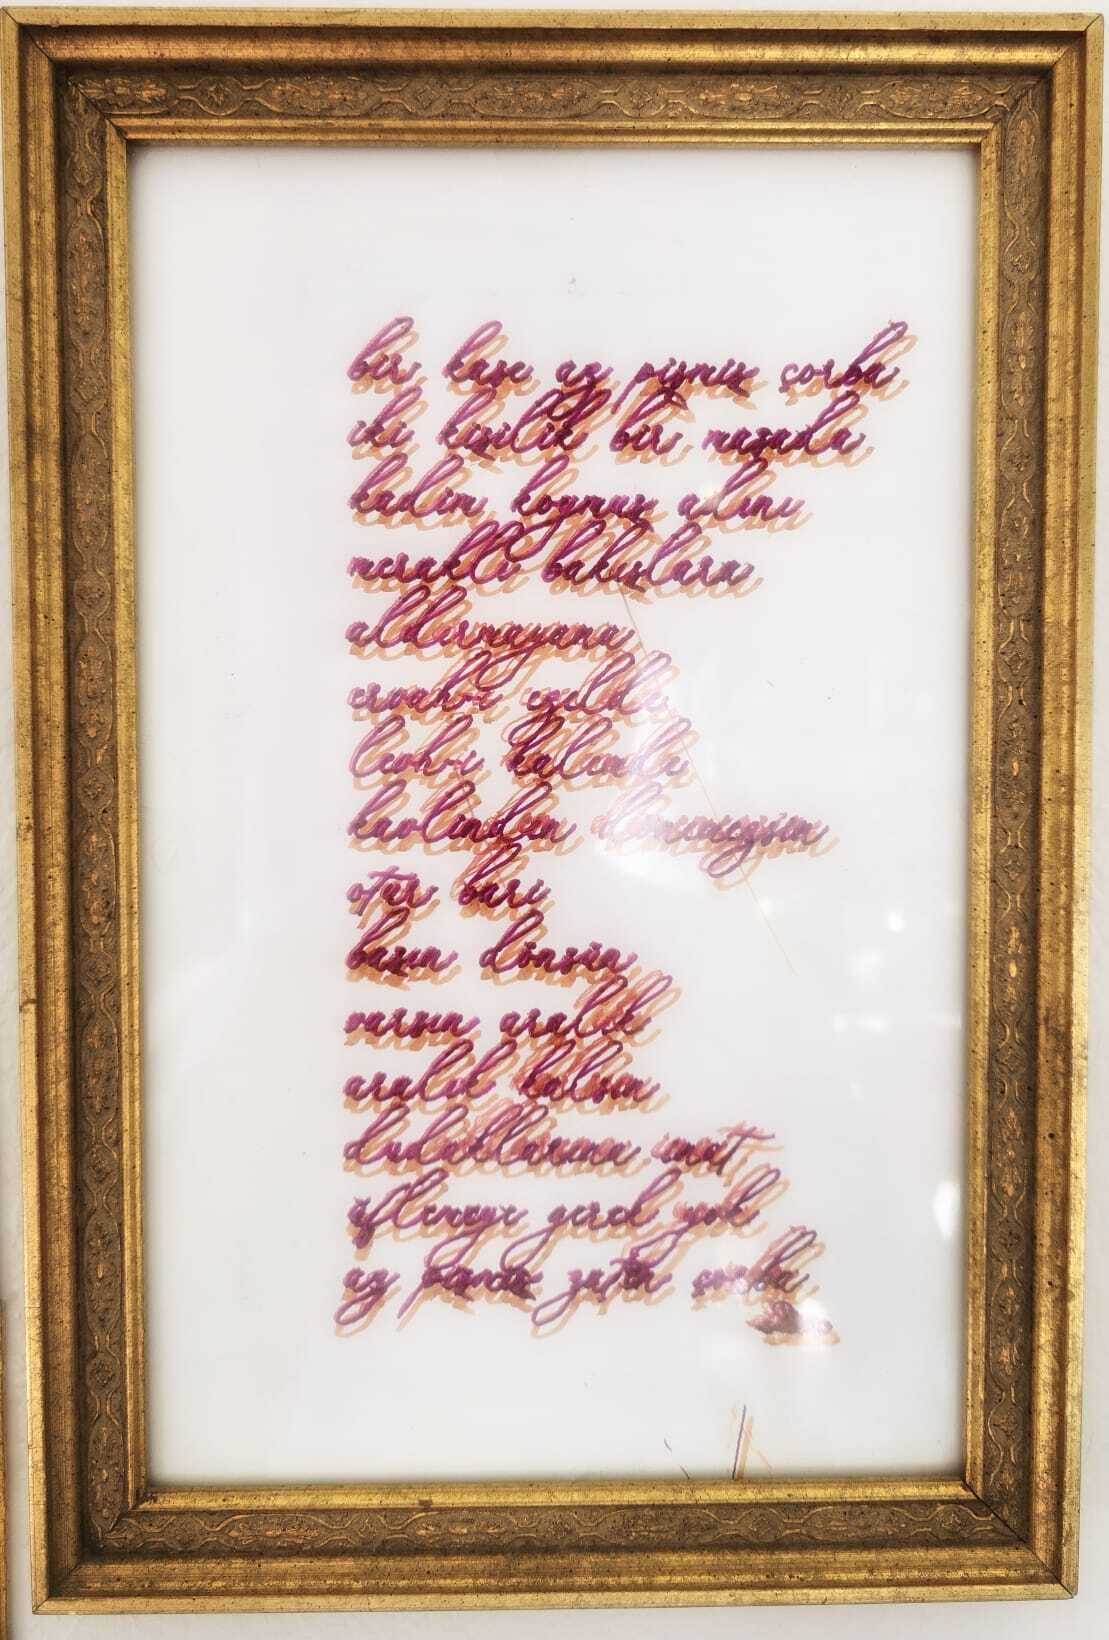 bir kase az pişmiş çorba
iki kişilik bir masada
kadim koymuş adını
meraklı bakışlara
aldırmayana
ervah-ı ezelde
levh-i kalemde
kavlinden dönmezsin
otur bari
başın dönsün
varsın aralık
aralık kalsın
dudaklarına inat
üflemeye gerek yok
az pişmiş zaten çorba